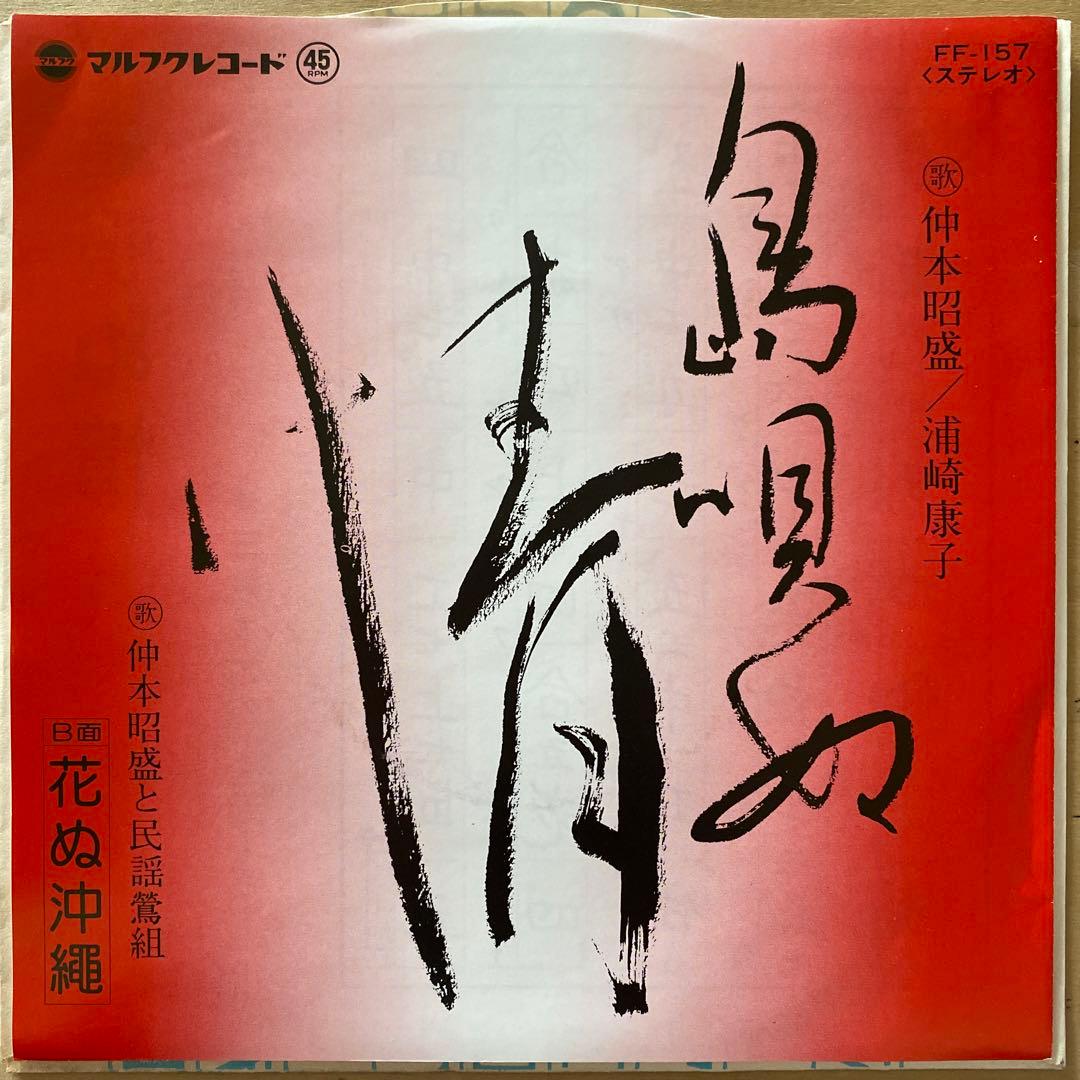 マルフク
マルフクレコード 45 RPM
FF-157
〈ステレオ〉
歌 仲本昭盛/浦崎康子
島唄ぬ
情
歌 仲本昭盛と民謡鶯組
B面 花ぬ沖繩